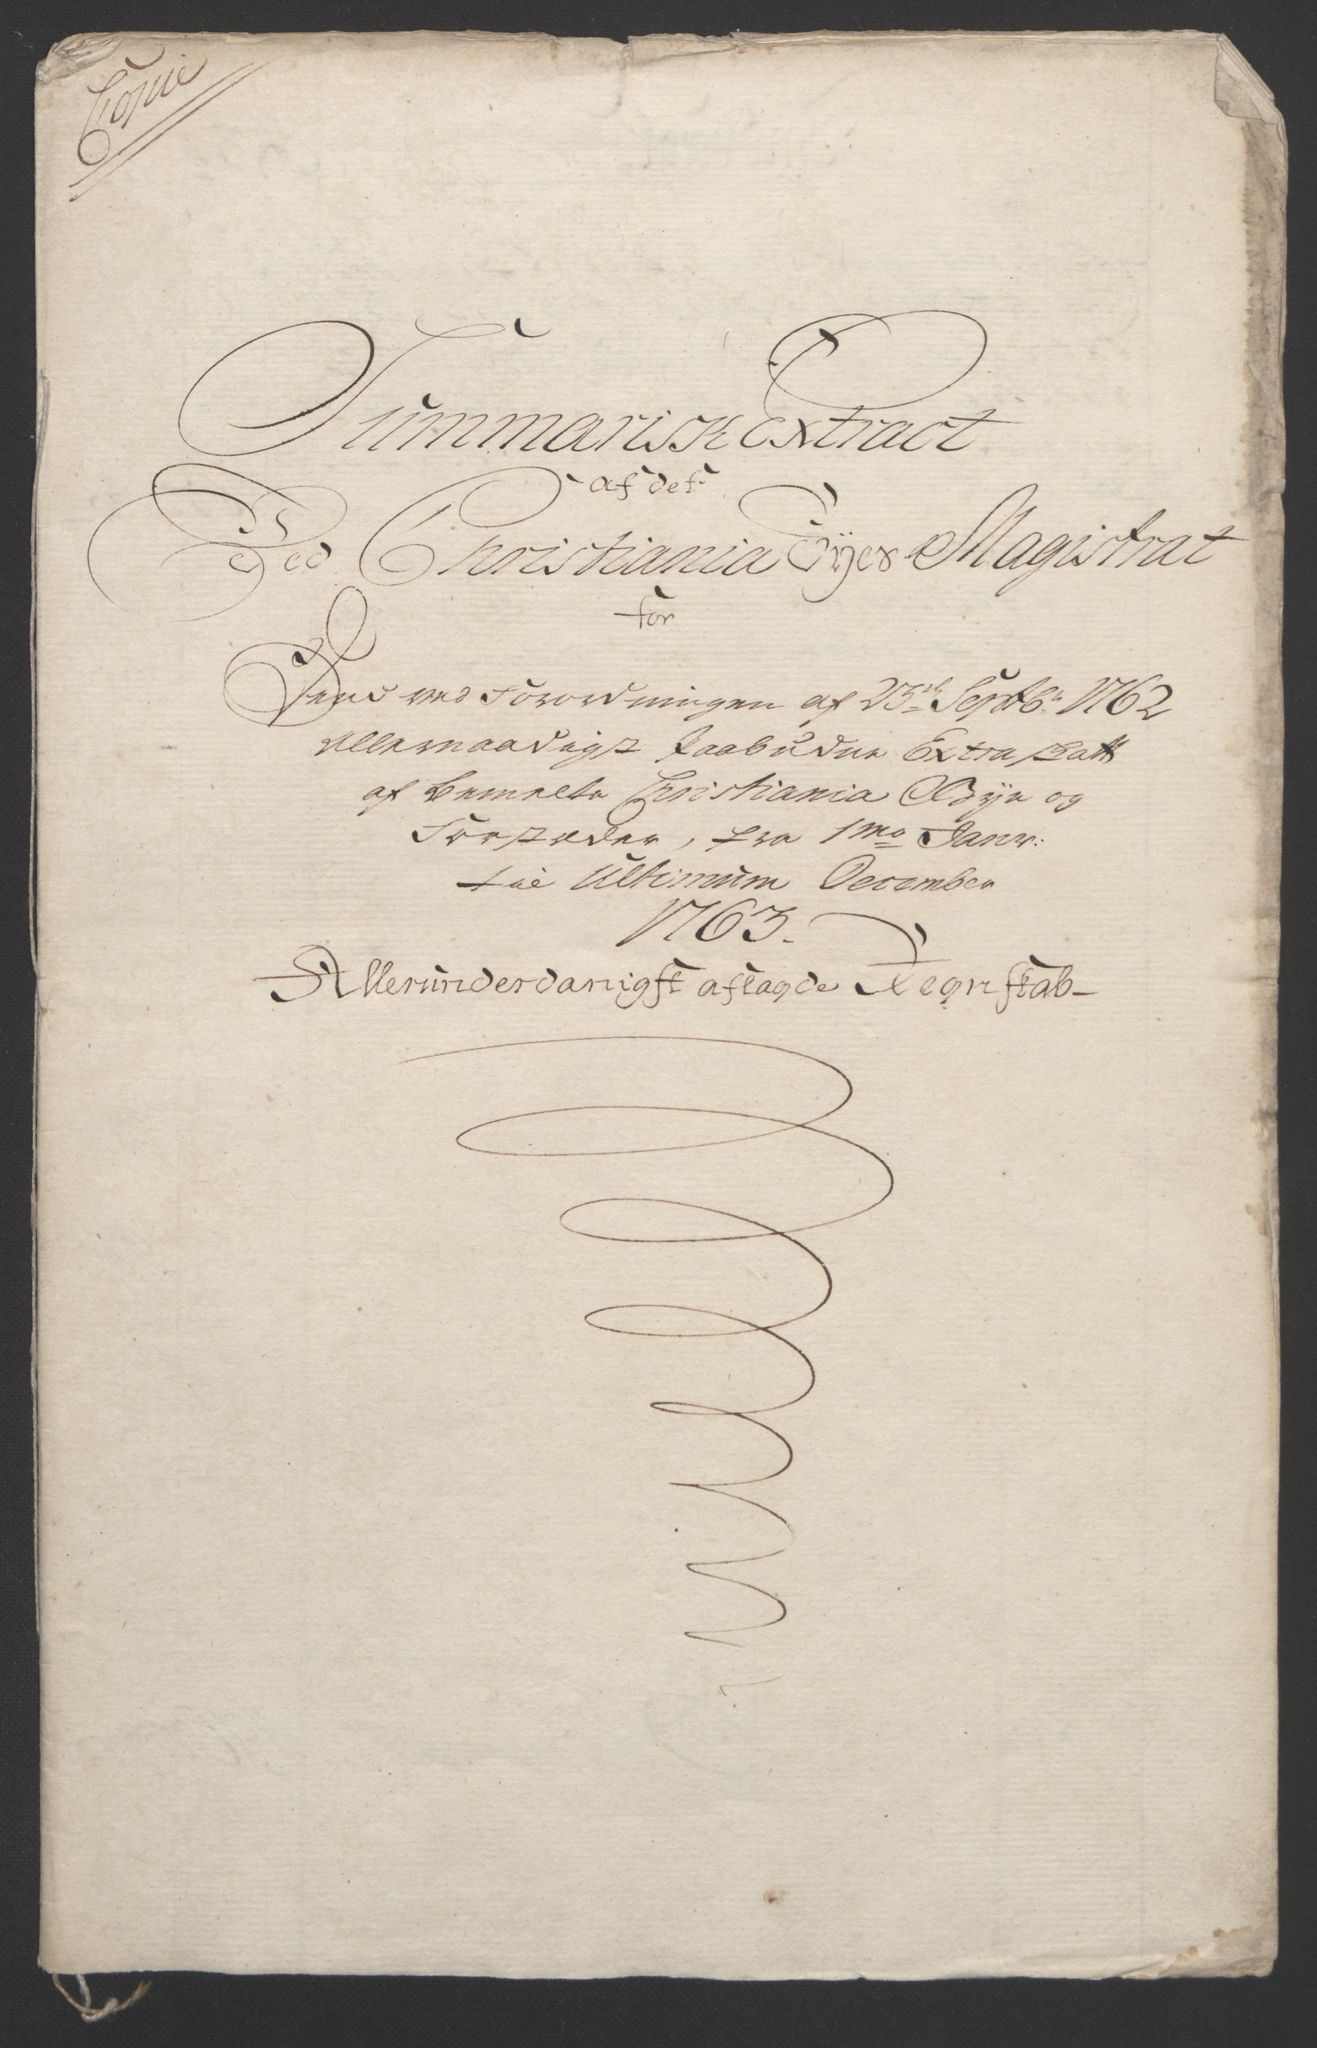 Copie
Summarisk Extract
af det
Ved Christiania Byes Magistrat
for
Dend ved Forordningen af 23de Septbr: 1762
Allernaadigst Paabudne Extra Skatt
af bemelte Christiania Bye og
Forstæder, fra 1mo Janv:
til Ultimum December
1763.
Allerunderdanigst aflagde Regnskab